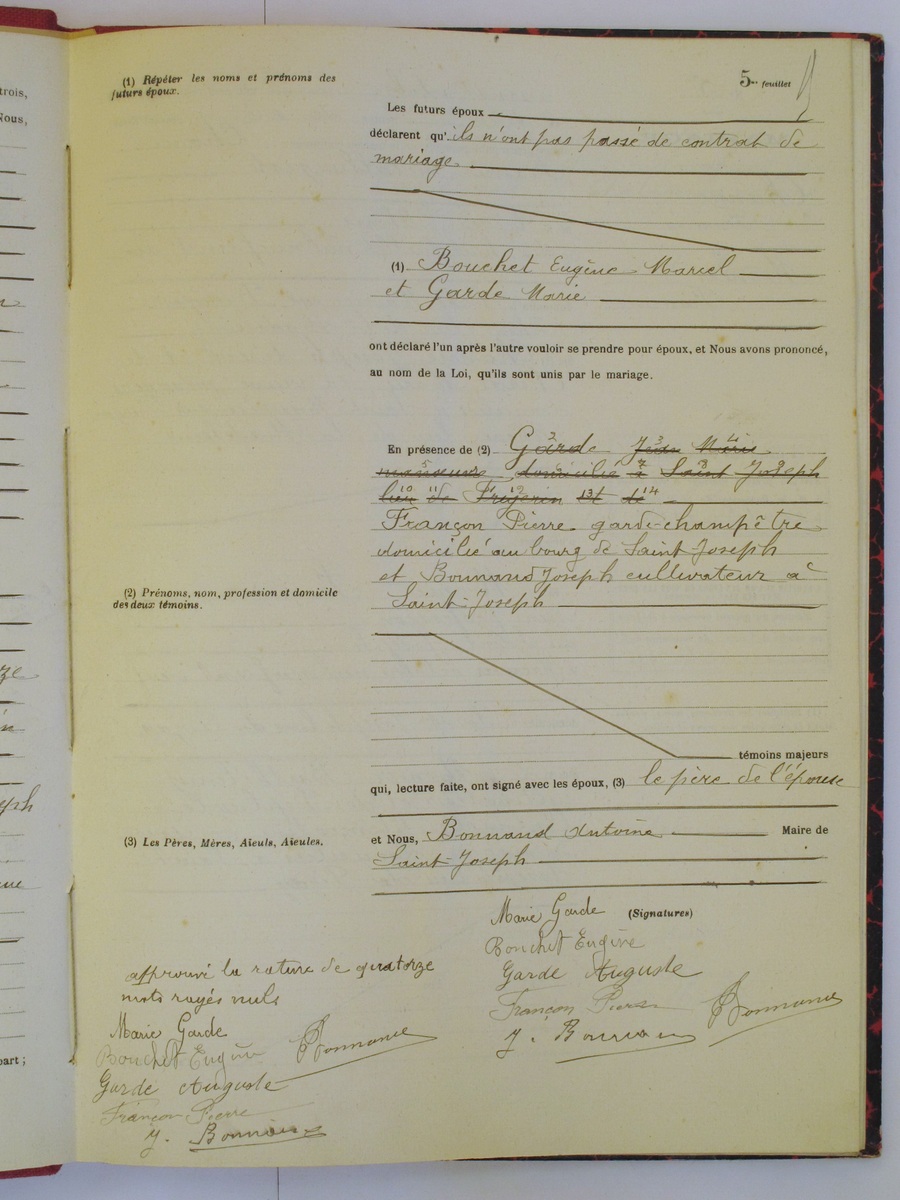 trois,
Nous,
part ;
(1) Répéter les noms et prénoms des
futurs époux.
5me feuillet
Les futurs époux
déclarent qu'ils n'ont pas passé de contrat de
mariage.
(1) Bouchet Eugène Marcel
et Garde Marie
ont déclaré l'un après l'autre vouloir se prendre pour époux, et Nous avons prononcé,
au nom de la Loi, qu'ils sont unis par le mariage.
En présence de (2) Garde
domicilié à Saint Joseph
lieu de et de
Françon Pierre garde-champêtre
domicilié au bourg de Saint Joseph
et Bonnand Joseph cultivateur à
Saint-Joseph
(2) Prénoms, nom, profession et domicile
des deux témoins.
témoins majeurs
qui, lecture faite, ont signé avec les époux, (3) le père de l'épouse
et Nous, Bonnand Antoine Maire de
Saint-Joseph
(3) Les Pères, Mères, Aïeuls, Aïeules.
Marie Garde (Signatures)
Bouchet Eugène
Garde Auguste
Françon Pierre
J. Bonnand Bonnand
approuvé la rature de quatorze
mots rayés nuls
Marie Garde
Bouchet Eugène Bonnand
Garde Auguste
Françon Pierre
J. Bonnand